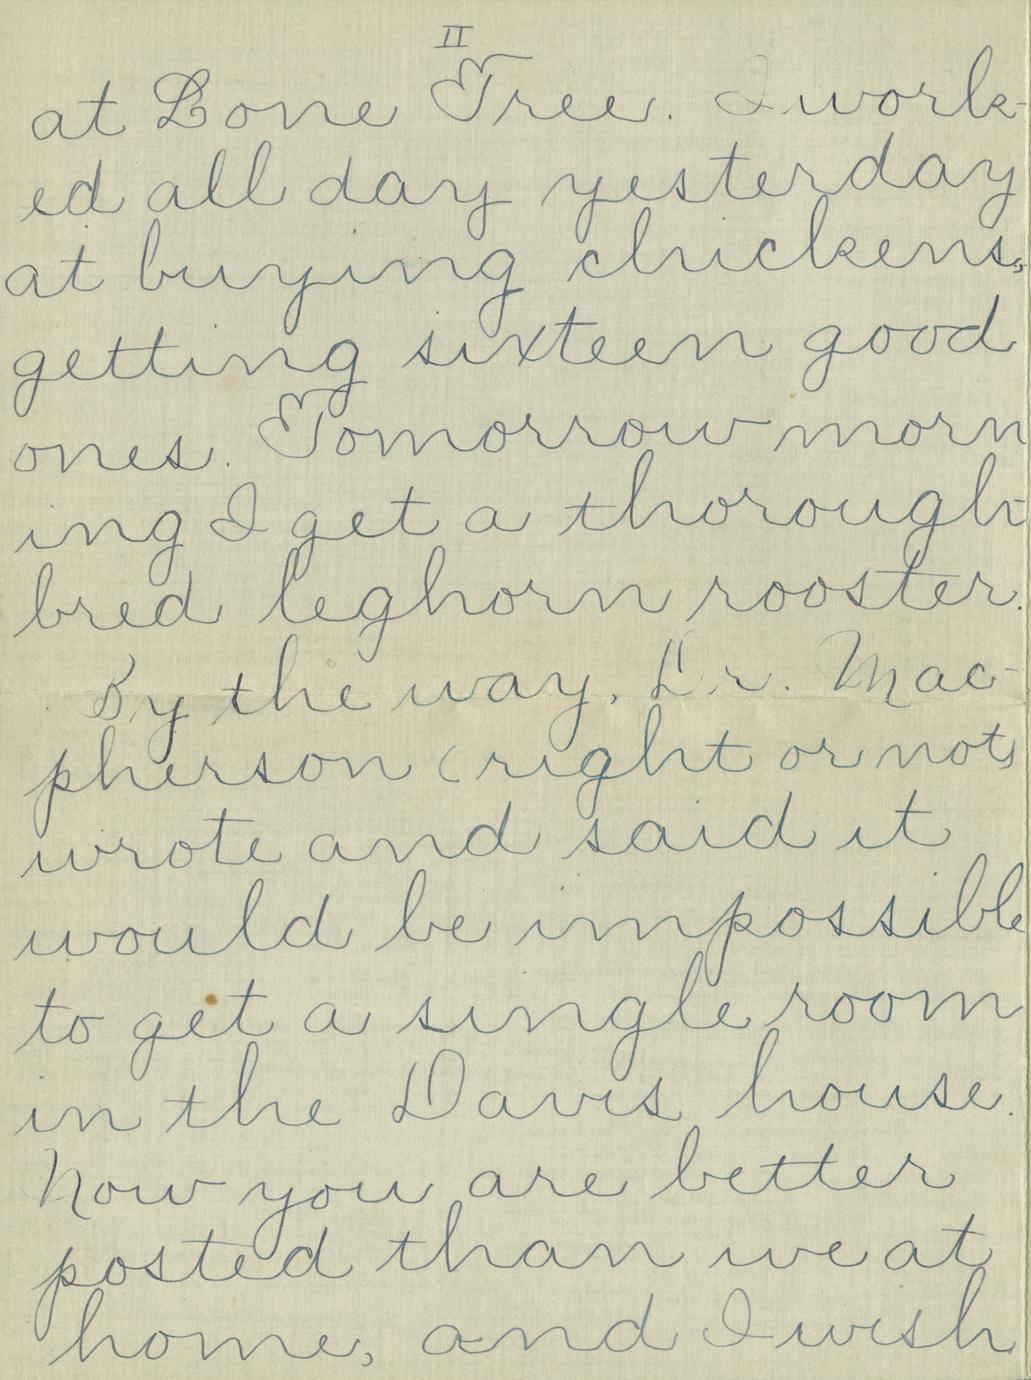 II
at Lone Tree. I work-
ed all day yesterday
at buying chickens,
getting sixteen good
ones. Tomorrow morn
ing I get a thorough-
bred leghorn rooster.
By the way, Dr. Mac-
pherson (right or not)
wrote and said it
would be impossible
to get a single room
in the Davis house.
Now you are better
posted than we at
home, and I wish